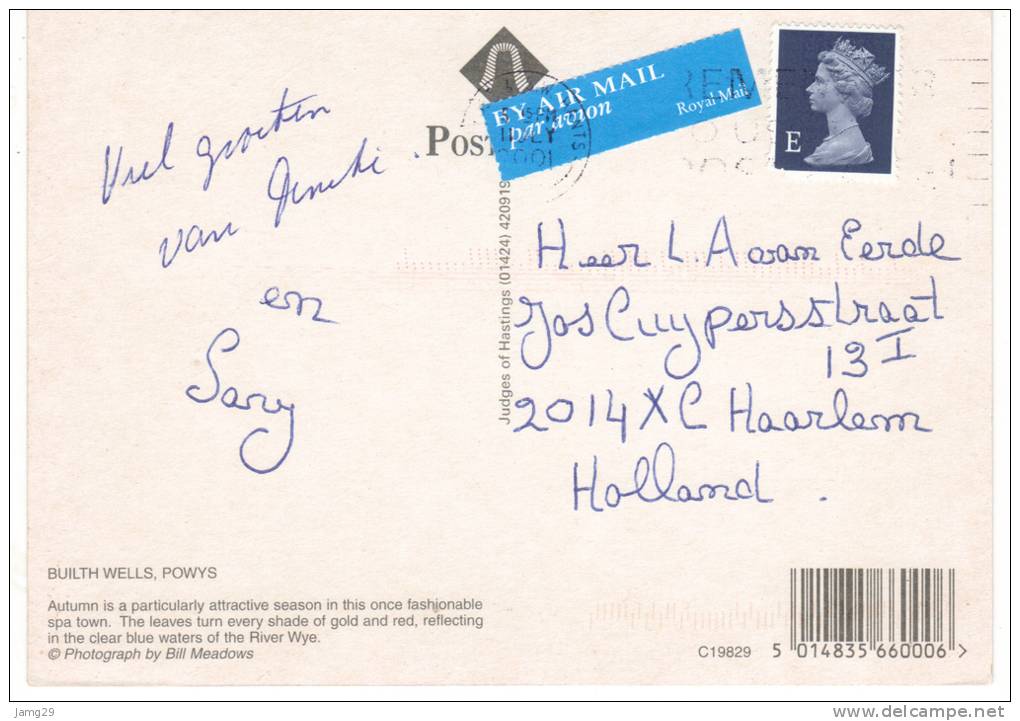 Veel groeten
van
en
Sary
POST
BY AIR MAIL
par avion
Royal Mail
E
2001
Judges of Hastings (01424) 420919
Heer L. A van Eerde
Jos Cuypersstraat
13 I
2014 XC Haarlem
Holland .
BUILTH WELLS, POWYS
Autumn is a particularly attractive season in this once fashionable
spa town. The leaves turn every shade of gold and red, reflecting
in the clear blue waters of the River Wye.
© Photograph by Bill Meadows
C19829
5 014835 660006 >
jamg29
www.delcampe.net